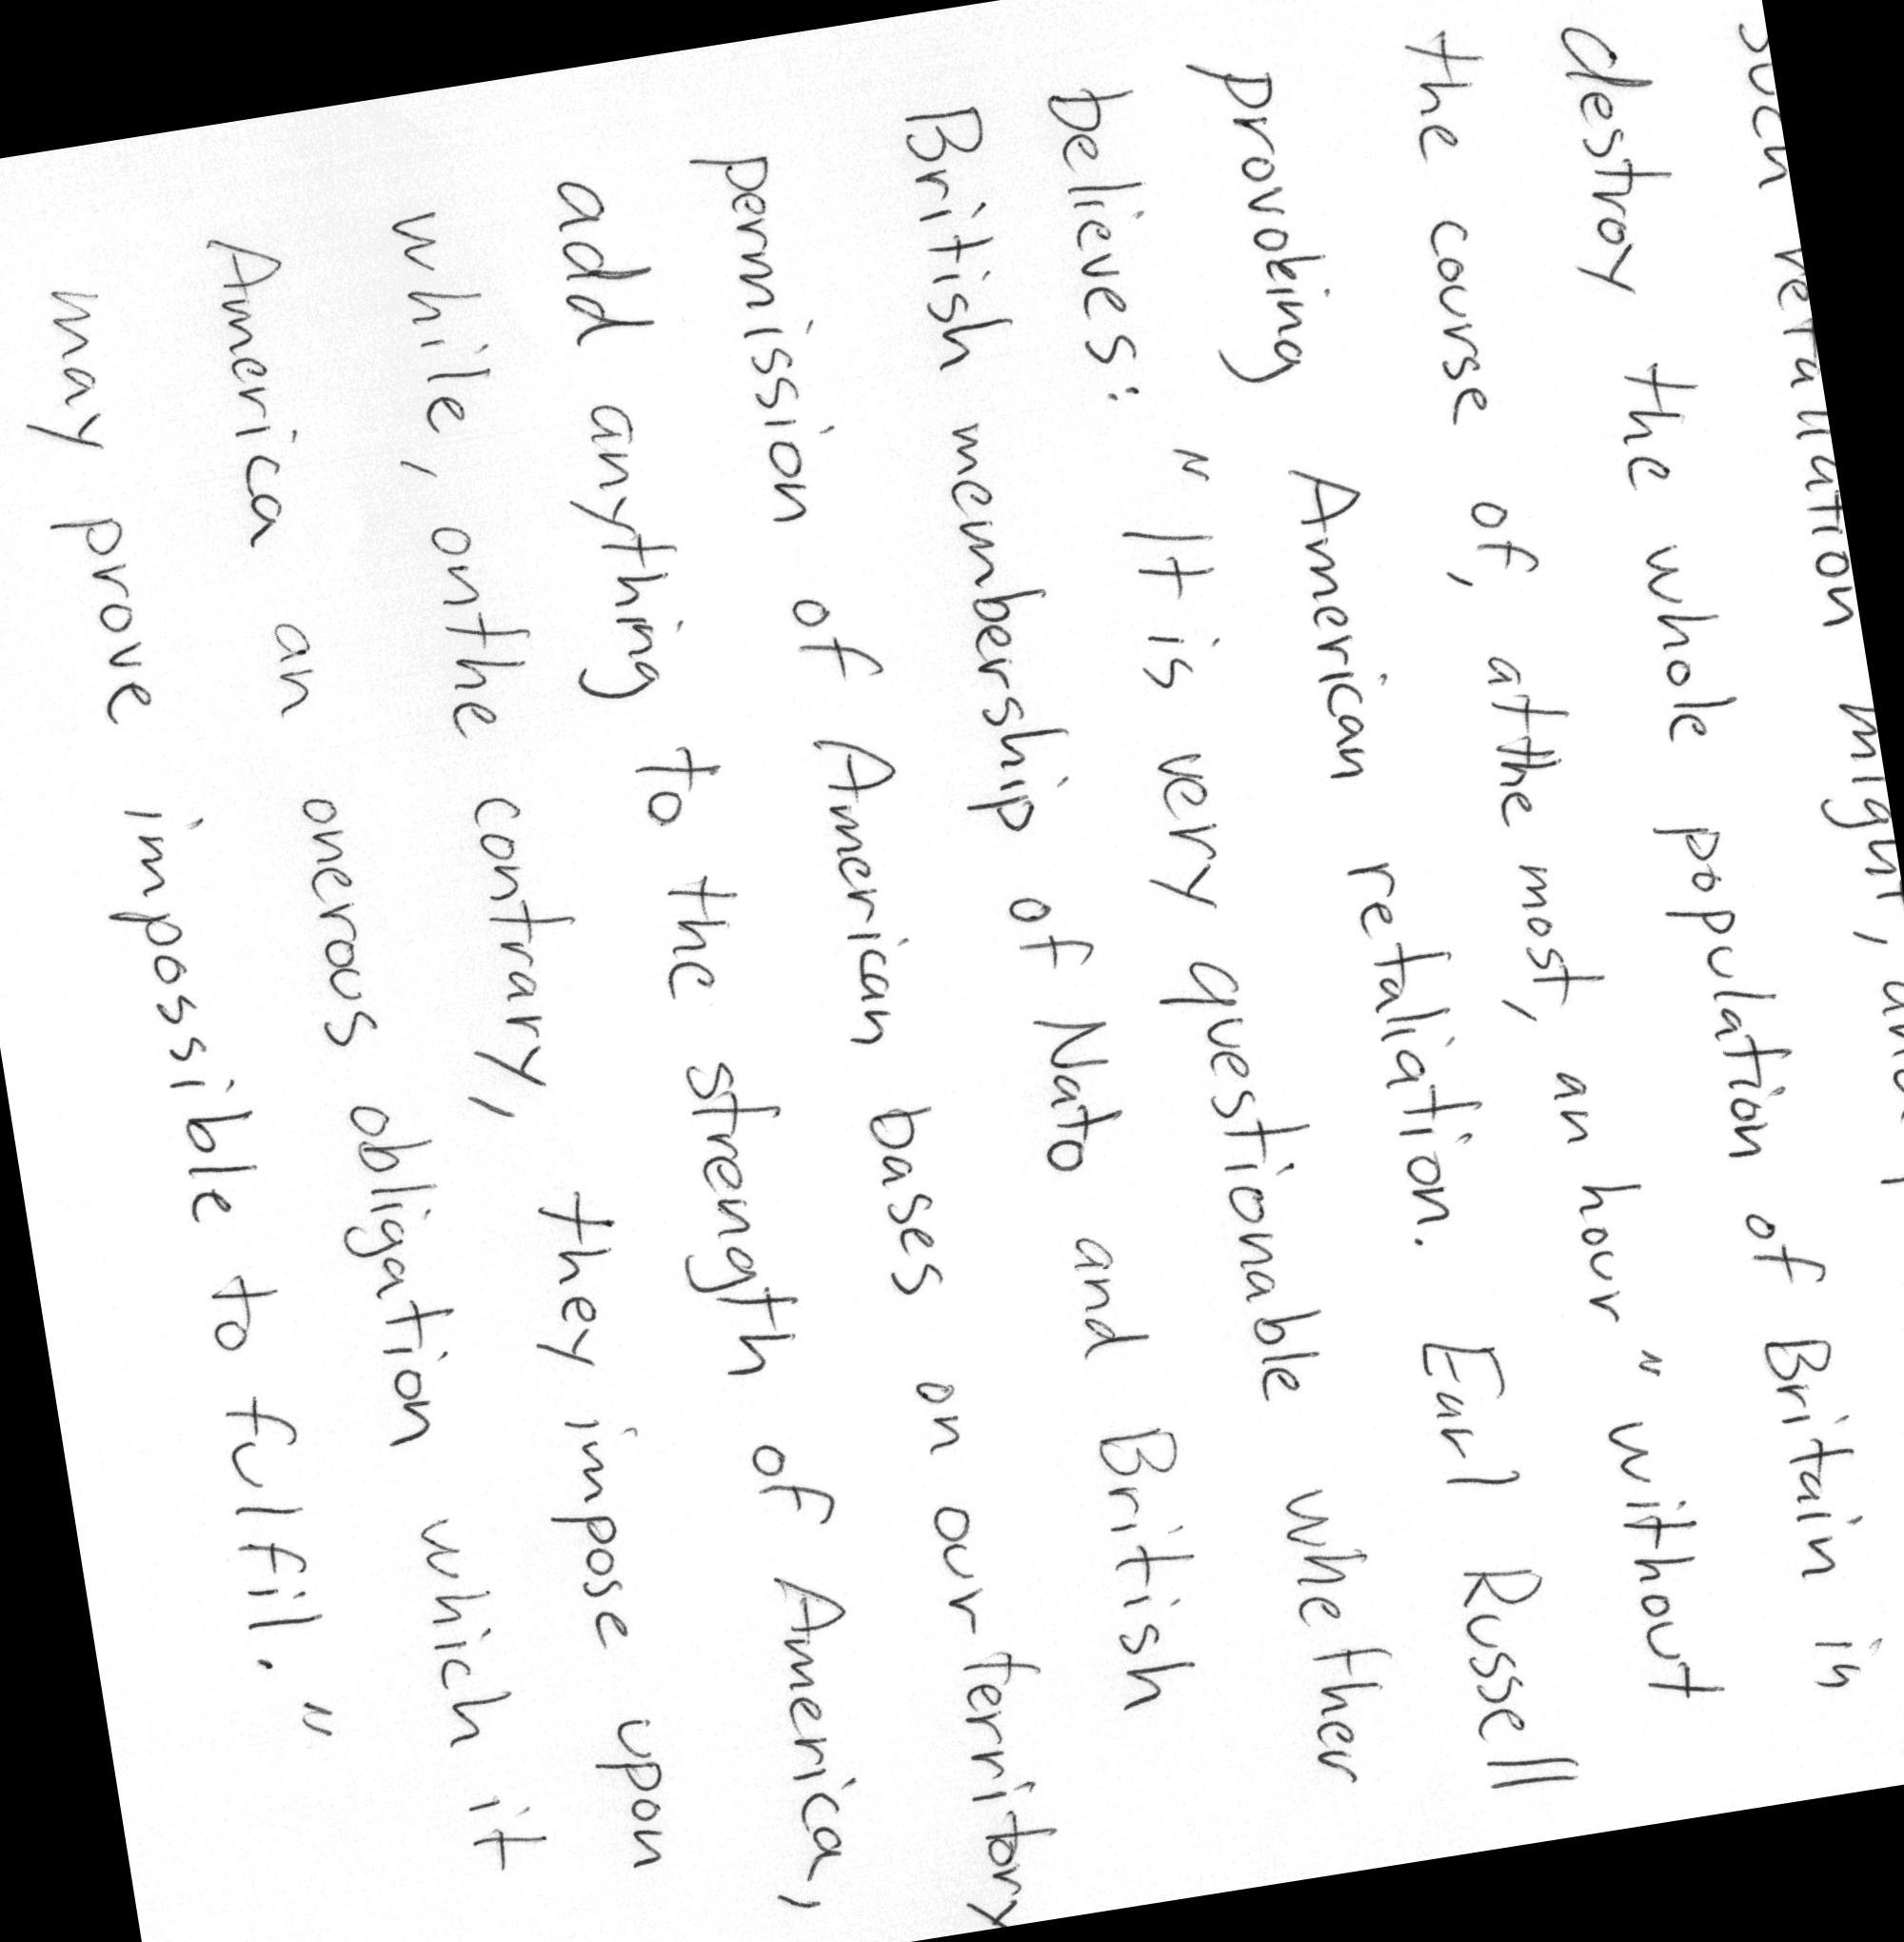 such retaliation might,
destroy the whole population of Britain in
the course of, at the most, an hour" without
provoking American retaliation. Earl Russell
believes: "It is very questionable whether
British membership of Nato and British
permission of American bases on our territory
add anything to the strength of America,
while, on the contrary, they impose upon
America an onerous obligation which it
may prove impossible to fulfil."